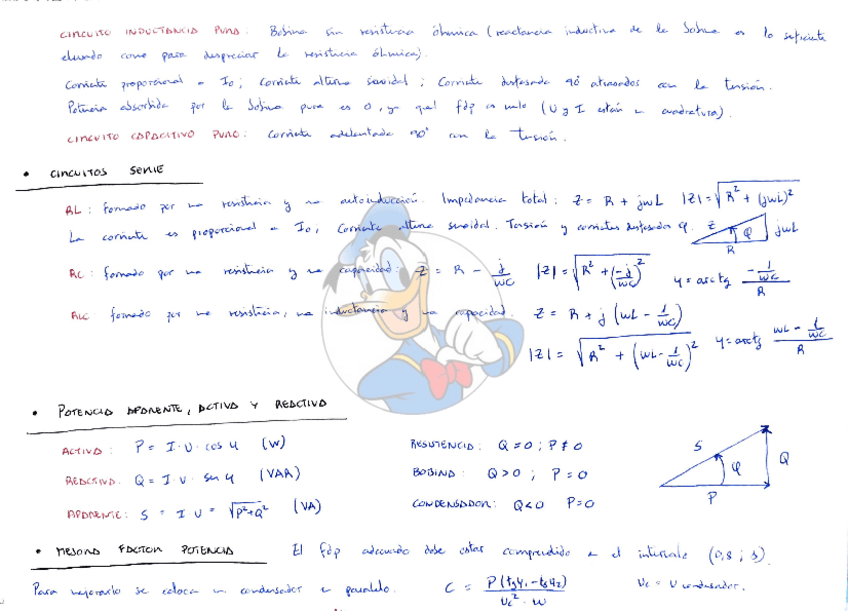 CIRCUITO INDUCTANCIA PURA: Bobina sin resistencia óhmica (reactancia inductiva de la bobina es lo suficiente
elevado como para despreciar la resistencia óhmica).
Corriente proporcional a Io; Corriente alterna senoidal; Corriente desfasada 90° atrasados con la tensión.
Potencia absorbida por la bobina pura es 0, ya qu el fdp es nulo (U y I están en cuadratura).
CIRCUITO CAPACITIVO PURO: Corriente adelantada 90° con la tensión.
• CIRCUITOS SERIE
RL: formado por una resistencia y una autoinducción. Impedancia total: Z = R + jωL |Z| = √R² + (jωL)²
La corriente es proporcional a Io, Corriente alterna senoidal. Tensión y corrientes desfasadas φ. Z φ jωL
R
RC: formado por una resistencia y una capacidad: Z = R - j/ωC |Z| = √R² + (-j/ωC)² φ = arctg (-1/ωC)/R
RLC formado por una resistencia, una inductancia y una capacidad. Z = R + j (ωL - 1/ωC)
|Z| = √R² + (ωL - 1/ωC)² φ = arctg (ωL - 1/ωC)/R
• POTENCIA APARENTE, ACTIVA Y REACTIVA
ACTIVA: P = I · U · cos φ (W) RESISTENCIA: Q = 0 ; P ≠ 0 S φ Q
REACTIVA: Q = I · U · sen φ (VAR) BOBINA: Q > 0 ; P = 0
P
APARENTE: S = I U = √P²+Q² (VA) CONDENSADOR: Q < 0 P = 0
• MEJORA FACTOR POTENCIA El fdp adecuado debe estar comprendido en el intervalo (0,8 ; 1).
Para mejorarlo se coloca un condensador en paralelo. C = P (tg φ1 - tg φ2)/(Uc² · ω) Uc = U condensador.